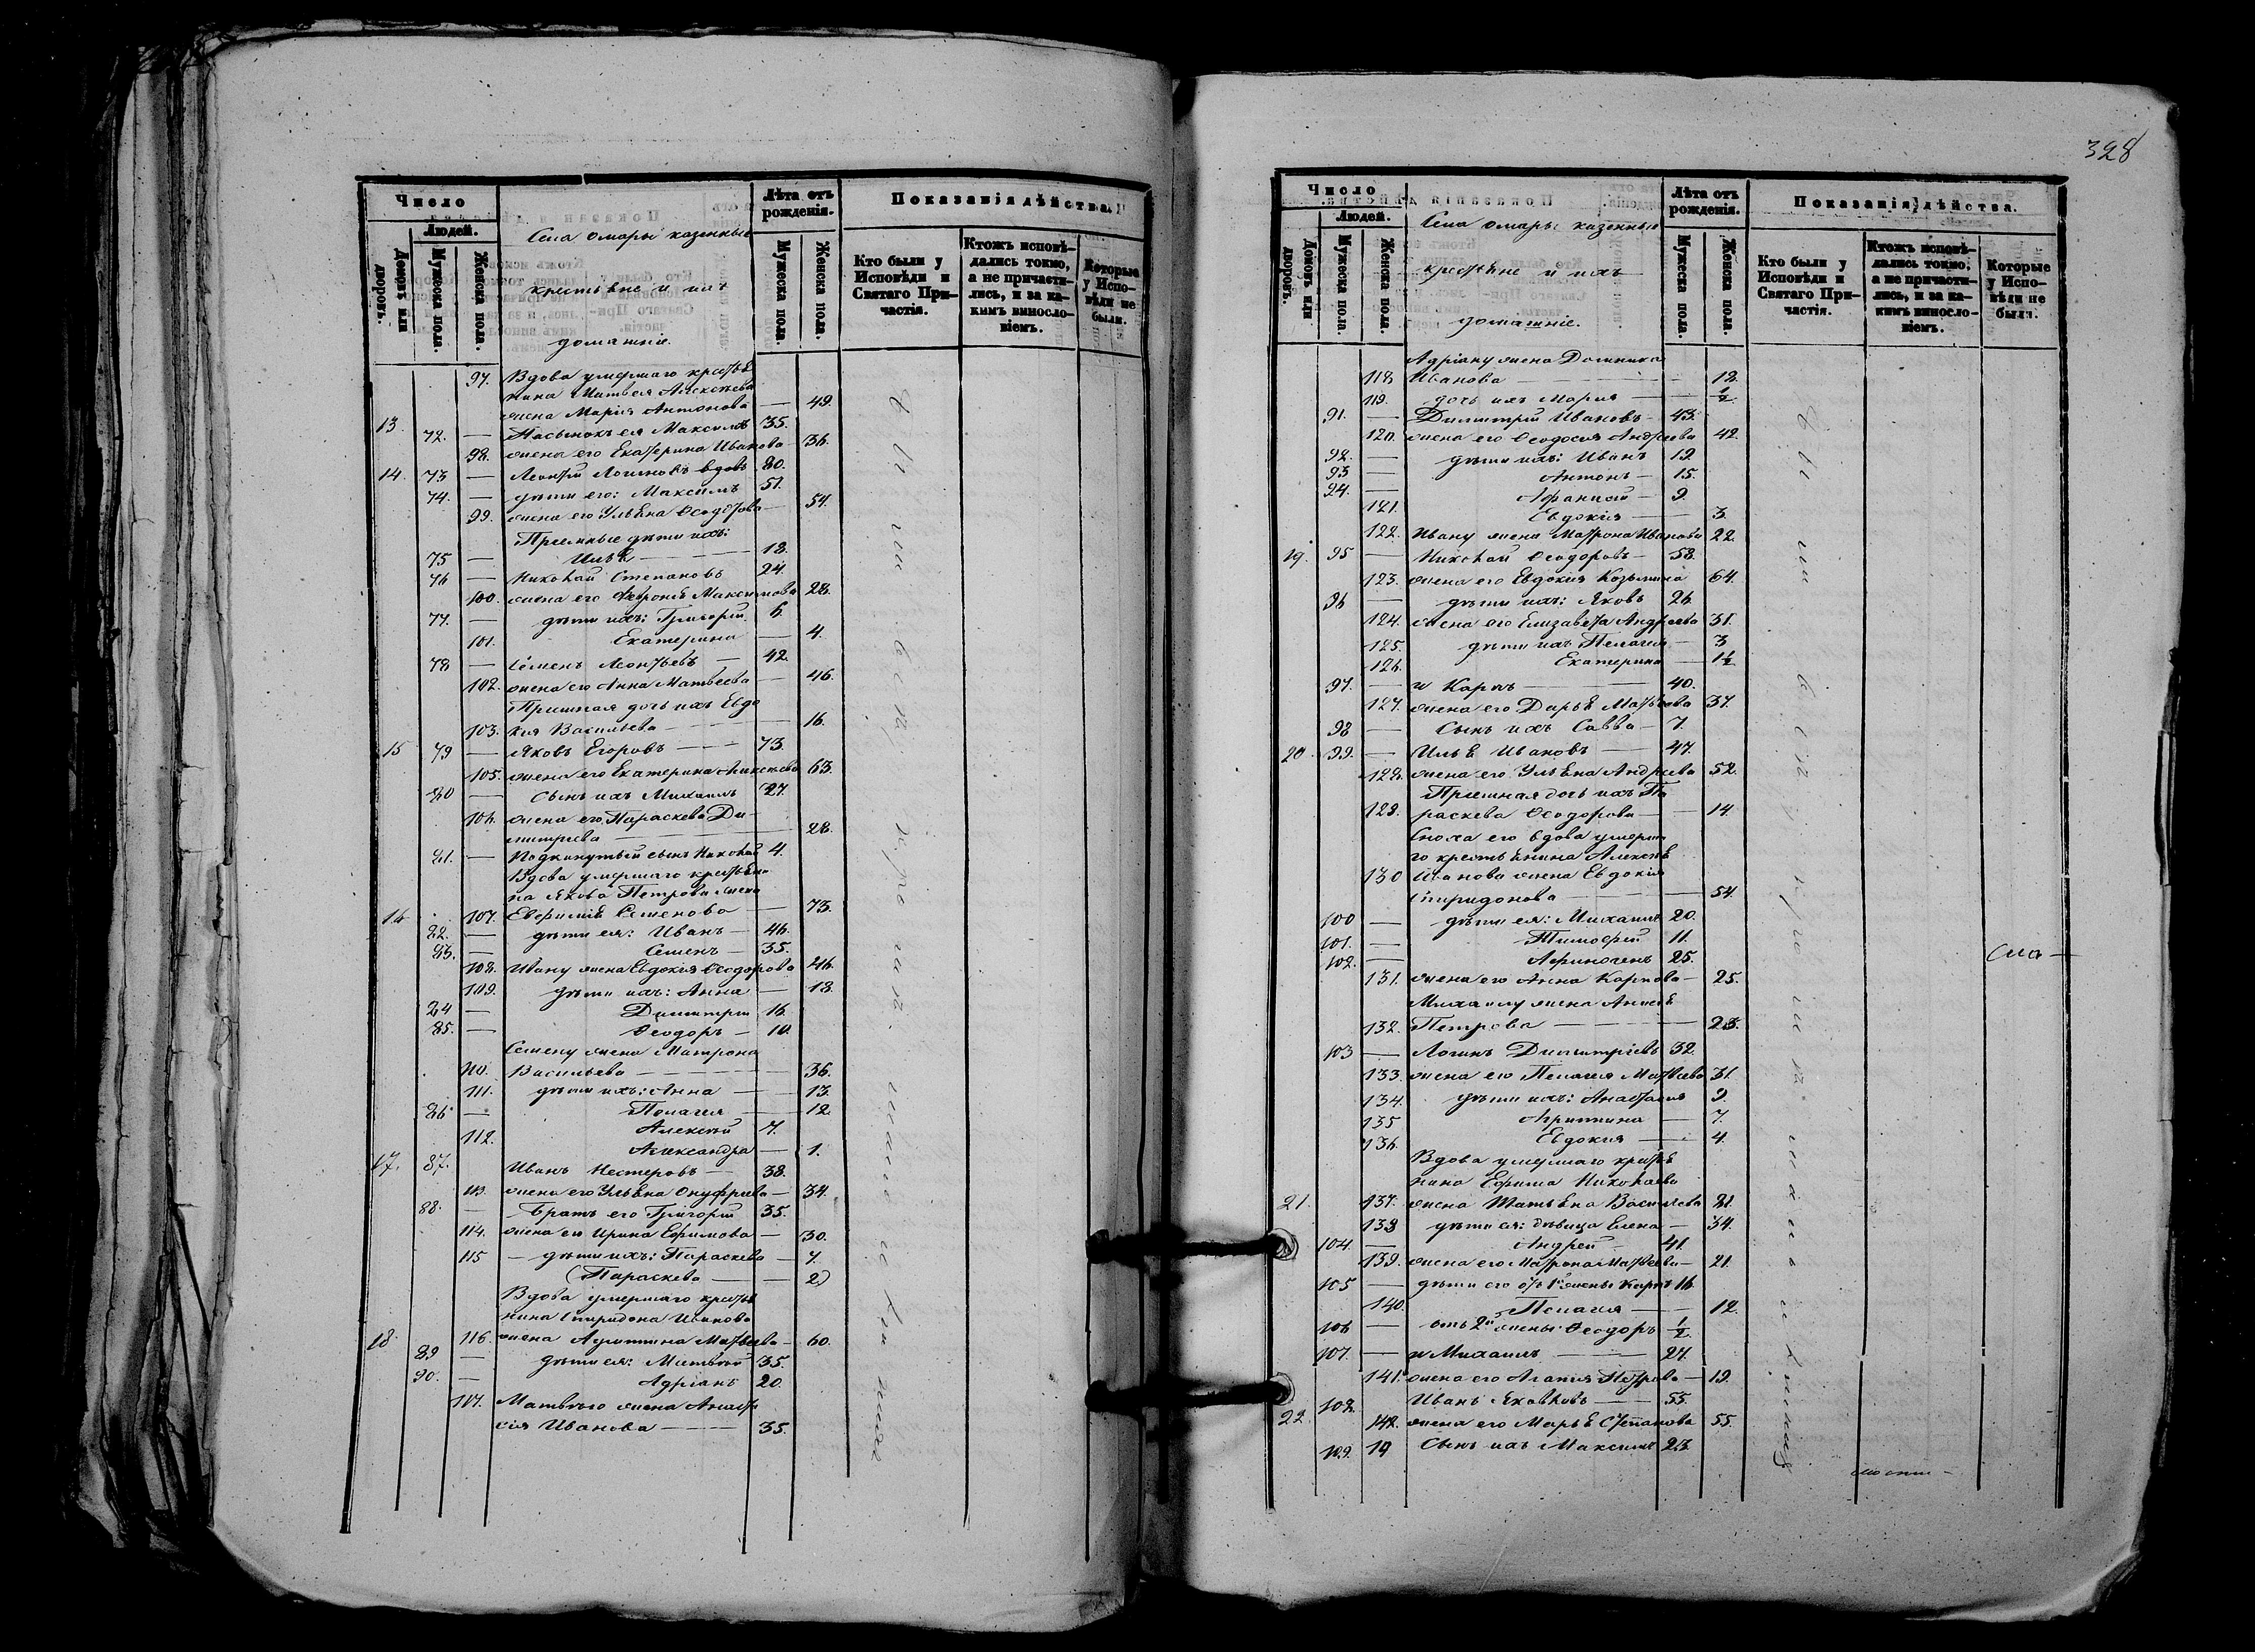 328
Число
Людей.
Домовъ или дворовъ.
Мужеска пола.
Женска пола.
Села Омары казенные
крестьяне и ихъ
домашніе.
Лѣта отъ рожденія.
Мужеска пола.
Женска пола.
Показанія дѣйства.
Кто были у Исповѣди и Святаго Причастія.
Ктожъ исповѣдались токмо, а не причастились, и за какимъ винословіемъ.
Которые у Исповѣди не были.
97. Вдова умершаго крестья
нина Матвея Алексѣева
жена Марія Антонова — 49.
13. 72. — Пасынокъ ея Максимъ 35.
98. жена его Екатерина Иванова 36.
14. 73 — Леонтій Логиновъ вдовъ 80.
74. — дѣти его: Максимъ 51.
99. жена его Ульяна Ѳеодотова — 54.
Пріемные дѣти ихъ:
75 — Илья — 18.
76 — Николай Степановъ 24.
100. жена его Ѳевронія Максимова 28.
77. — дѣти ихъ: Григорій 6.
101. Екатерина — 4.
78 — Семенъ Леонтьевъ — 42.
102. жена его Анна Матвеева — 46.
Пріемная дочь ихъ Евдо
103. кія Васильева — 16.
15 79 — Яковъ Егоровъ — 73.
105. жена его Екатерина Алексѣева 63.
80 — Сынъ ихъ Михаилъ 27.
106. жена его Параскева Ди-
митріева — 28.
81. — Подкинутый сынъ Николай 4.
Вдова умершаго крестьяни
на Якова Петрова жена
16 107. Евфимія Семенова — 73.
82. — дѣти ея: Иванъ — 46.
83. — Семенъ — 35.
108. Ивану жена Евдокія Ѳеодорова 46.
109. дѣти ихъ: Анна — 18.
84 — Димитрій 16.
85. — Ѳеодоръ — 10.
Семену жена Матрона
110. Васильева — 36.
111. дѣти ихъ: Анна — 13.
86 — Пелагея — 12.
112. Алексѣй 7.
Александра — 1.
17. 87. Иванъ Нестеровъ — 38.
113. жена его Ульяна Онуфріева — 34.
88. — Братъ его Григорій 35.
114. жена его Ирина Ефимова — 30.
115 — дѣти ихъ: Параскева — 7.
(Параскева — 2)
Вдова умершаго крестья
нина Спиридона Иванова
18 116. жена Агриппина Матвеева — 60.
89 — дѣти ея: Матвѣй 35.
90. — Адріанъ 20.
117. Матвѣю жена Анаста
сія Иванова — 35.
Число
Людей.
Домовъ или дворовъ.
Мужеска пола.
Женска пола.
Села Омары казенные
крестьяне и ихъ
домашніе.
Лѣта отъ рожденія.
Мужеска пола.
Женска пола.
Показанія дѣйства.
Кто были у Исповѣди и Святаго Причастія.
Ктожъ исповѣдались токмо, а не причастились, и за какимъ винословіемъ.
Которые у Исповѣди не были.
Адріану жена Домника
118 Иванова — 18.
119. дочь ихъ Марія — 1/2
91. — Димитрій Ивановъ — 43.
120. жена его Ѳеодосія Андреева 42.
92. — дѣти ихъ: Иванъ 19.
93 — Антонъ — 15.
94. — Афанасій — 9.
121. Евдокія — 3.
122. Ивану жена Матрона Иванова 22.
19. 95 — Николай Ѳеодоровъ — 58.
123. жена его Евдокія Козьмина 64.
96 — дѣти ихъ: Яковъ 26.
124. жена его Елизавета Андреева 31.
125. дѣти ихъ Пелагея — 3
126. Екатерина — 1 1/2
97. — и Карпъ — 40.
127. жена его Дарья Матвеева 37.
98 — Сынъ ихъ Савва — 7.
20. 99. — Илья Ивановъ — 47.
128. жена его Ульяна Андреева 52.
Пріемная дочь ихъ Па
129. раскева Ѳеодорова — 14.
Сноха его вдова умерша
го крестьянина Алексѣя
130 Иванова жена Евдокія
Спиридонова — 54.
100 — дѣти ея: Михаилъ 20.
101. — Тимоѳей 11.
102. — Афиногенъ 25.
131. жена его Анна Карпова — 25.
Михаилу жена Анисія
132. Петрова — 23.
103 — Логинъ Димитріевъ 32.
133. жена его Пелагея Матвеева 31.
134. дѣти ихъ: Анастасія 9.
135 Агриппина — 7.
136. Евдокія — 4.
Вдова умершаго крестья
нина Ефима Николаева
21. 137. жена Татьяна Васильева 81.
138 дѣти ея: дѣвица Елена — 34.
104. — Андрей — 41.
139. жена его Матрона Матвеева — 21.
105 — дѣти его отъ 1й жены Карпъ 16.
140. Пелагея — 12.
106 — отъ 2й жены Ѳеодоръ 1/2
107. — и Михаилъ — 24.
141. жена его Агапія Петрова — 19.
22. 108. Иванъ Яковковъ — 55.
142. жена его Марья Степанова 55.
109. Сынъ ихъ Максимъ 23.